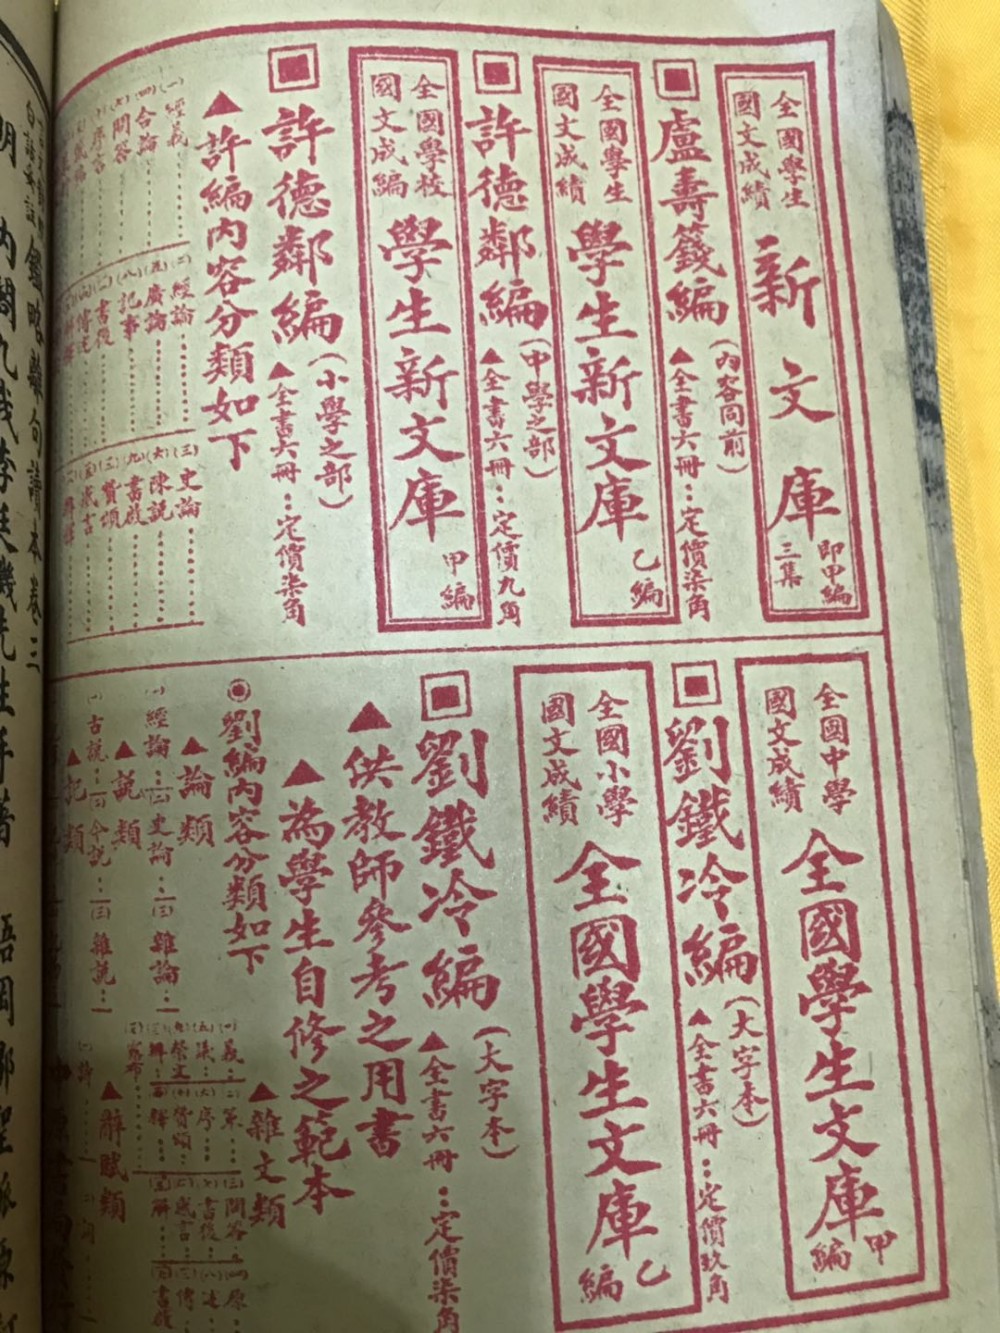 全國學生
國文成績
新文庫
即甲編
三集
盧壽籛編
(內容同前)
▲全書六冊：定價柒角
全國學生
國文成績
學生新文庫
乙編
許德鄰編
(中學之部)
▲全書六冊：定價九角
全國學校
國文成編
學生新文庫
甲編
許德鄰編
(小學之部)
▲全書六冊：定價柒角
▲許編內容分類如下
(一)經義
(二)經論
(三)史論
(四)合論
(五)廣論
(六)陳説
(七)問答
(八)記事
(九)書啟
序言
書後
(三)贊頌
傳述
(五)感言
全國中學
國文成績
全國學生文庫
甲編
劉鐵冷編
(大字本)
▲全書六冊：定價玖角
全國小學
國文成績
全國學生文庫
乙編
劉鐵冷編
(大字本)
▲全書六冊：定價柒角
▲供教師參考之用書
▲為學生自修之範本
劉編內容分類如下
▲論類
(一)經論(二)史論(三)雜論
▲説類
(一)古説(二)今説(三)雜説
▲記類
▲雜文類
(一)義(二)策(三)問答(一)原
(五)議(六)序(七)書後(八)述
(九)祭文(十)贊頌(二)感言(三)傳
(三)辨(四)釋(五)解(六)書啟
▲辭賦類
鑑略雜句讀本卷三
明 內閣九我李廷機先生手著 梧岡鄒聖脈原訂